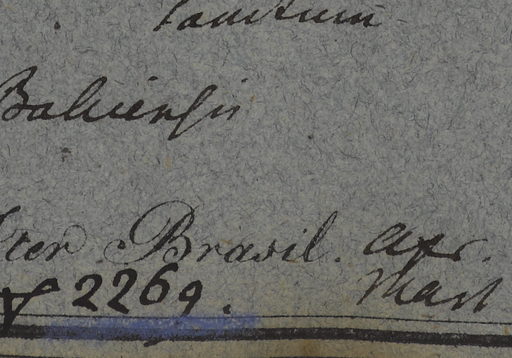 Bahiensis
Iter Brasil. apr.
f 2269. Mart